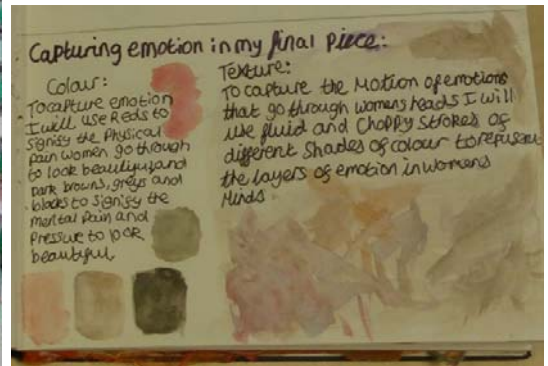 Capturing emotion in my final piece:
Colour:
To capture emotion
I will use Reds to
signify the Physical
pain women go through
to look beautiful and
dark browns, greys and
blacks to signify the
mental Pain and
Pressure to look
beautiful.
Texture:
To capture the Motion of emotions
that go through womens heads I will
use fluid and Choppy strokes of
different Shades of colour to represent
the layers of emotion in womens
Minds.